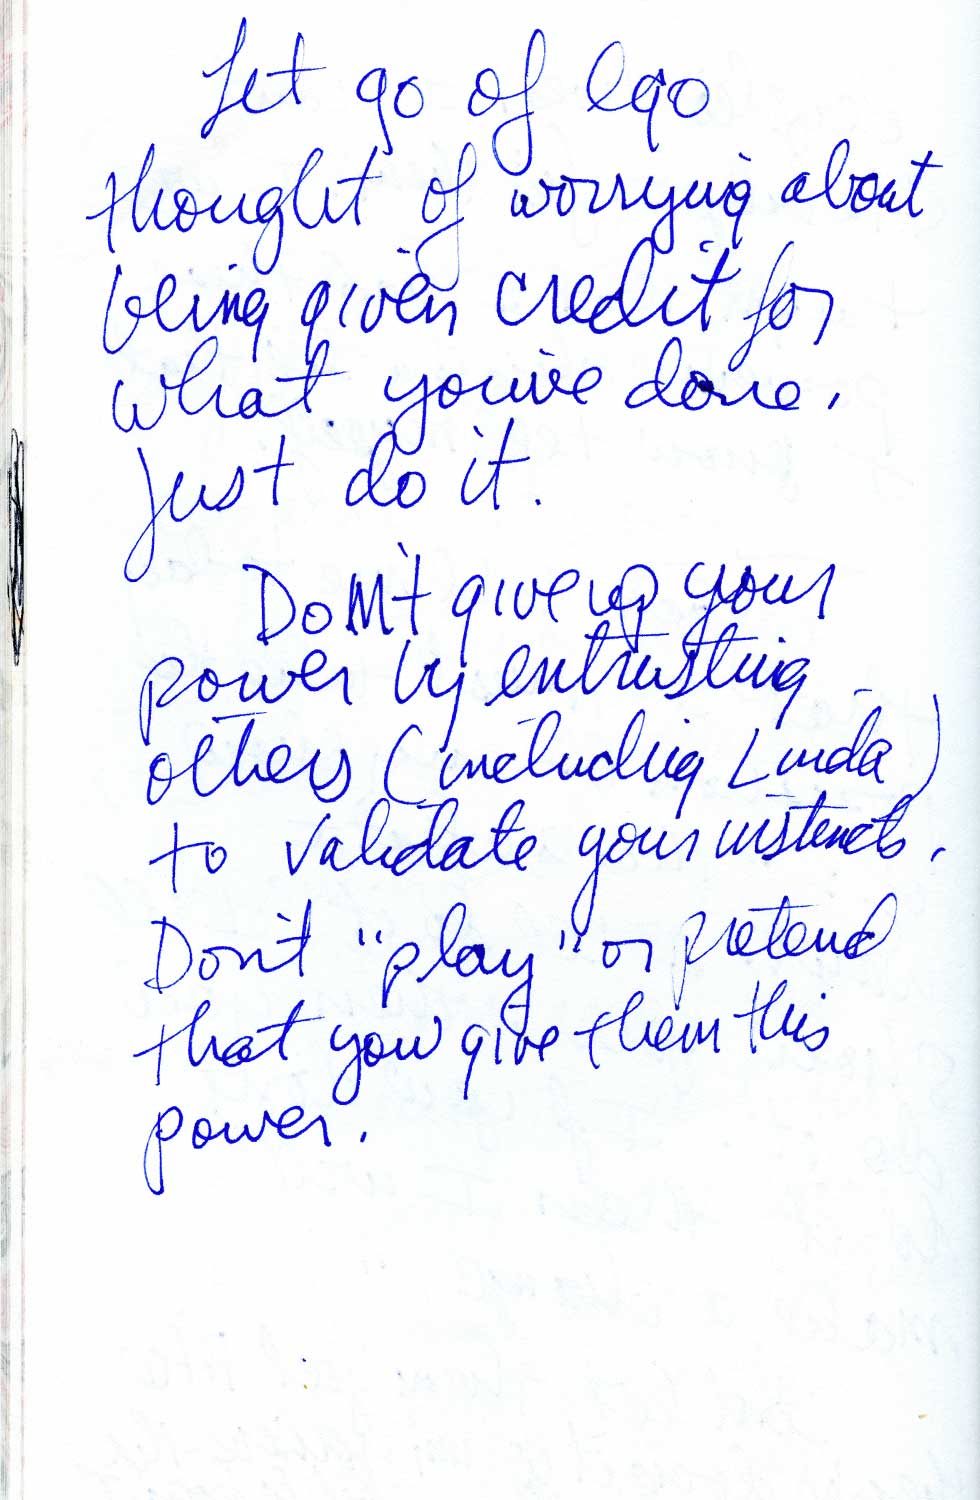 Let go of ego
thought of worrying about
being given credit for
what you've done.
Just do it.
Don't give up your
power by entrusting
others (including Linda)
to validate your instincts.
Don't "play" or pretend
that you give them this
power.